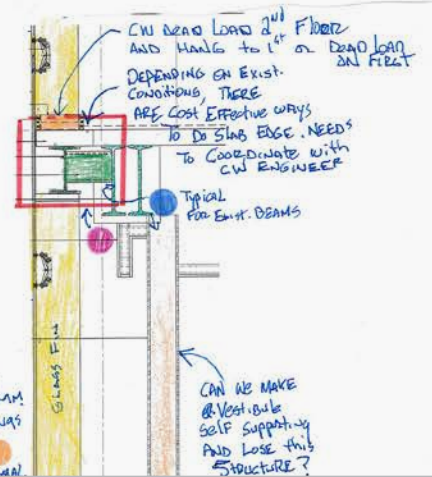 CW DEAD LOAD 2nd FLOOR
AND HANG to 1st or DEAD LOAD
ON FIRST
DEPENDING ON EXIST.
CONDITIONS, THERE
ARE COST EFFECTIVE WAYS
TO DO SLAB EDGE. NEEDS
TO COORDINATE with
CW ENGINEER
TYPICAL
FOR EXIST. BEAMS
GLASS FIN
CAN WE MAKE
@ VESTIBULE
SELF SUPPORTING
AND LOSE this
STRUCTURE?